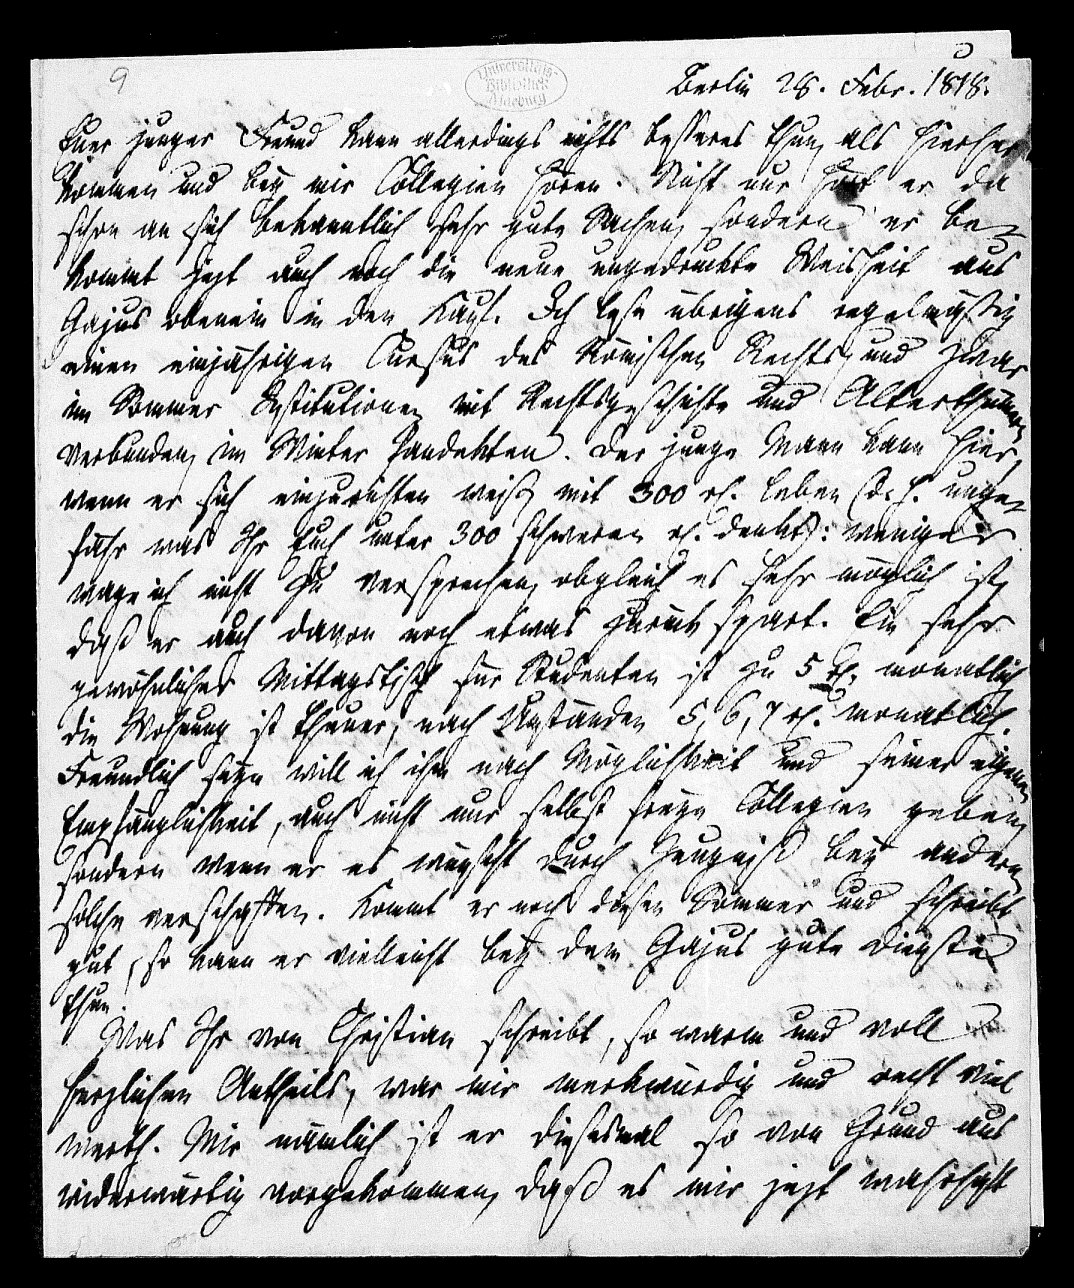 9
Universitäts-
Bibliothek
Marburg
Berlin 28. Febr. 1818.
Euer junger Freund kann allerdings nichts besseres thun, als hierher
kommen und bey mir Collegien hören. Nicht nur hört er da
schon an sich bekanntlich sehr gute Sachen, sondern er be-
kommt jezt auch noch die neue ungedruckte Weisheit aus
Gajus obenein in den Kauf. Ich lese übrigens regelmäßig
einen einjährigen Cursus des Römischen Rechts, und zwar
im Sommer Institutionen mit Rechtsgeschichte und Alterthümern
verbunden, im Winter Pandekten. Der junge Mann kann hier,
wenn er sich einzurichten weiß, mit 300 rh. leben (d. h. unge-
fähr was Ihr Euch unter 300 schweren rh. denkt): weniger
wage ich nicht zu versprechen, obgleich es sehr möglich ist,
daß er auch davon noch etwas zurück spart. Ein sehr
gewöhnlicher Mittagstisch für Studenten ist zu 5 rh. monatlich
die Wohnung ist theuer, nach Umständen 5, 6, 7 rh. monatlich.
Freundlich seyn will ich ihm nach Möglichkeit und seiner eigenen
Empfänglichkeit, auch nicht nur selbst freye Collegien geben,
sondern wenn er es wünscht durch Zeugniß bey andern
solche verschaffen. Kommt er noch diesen Sommer und schreibt
gut, so kann er vielleicht bey dem Gajus gute Dienste
thun.
Was Ihr von Christian schreibt, so warm und voll
herzlichen Antheils, war mir merkwürdig und recht viel
werth. Mir nämlich ist er diesesmal so von Grund aus
widerwärtig vorgekommen, daß es mir jezt wahrhaft